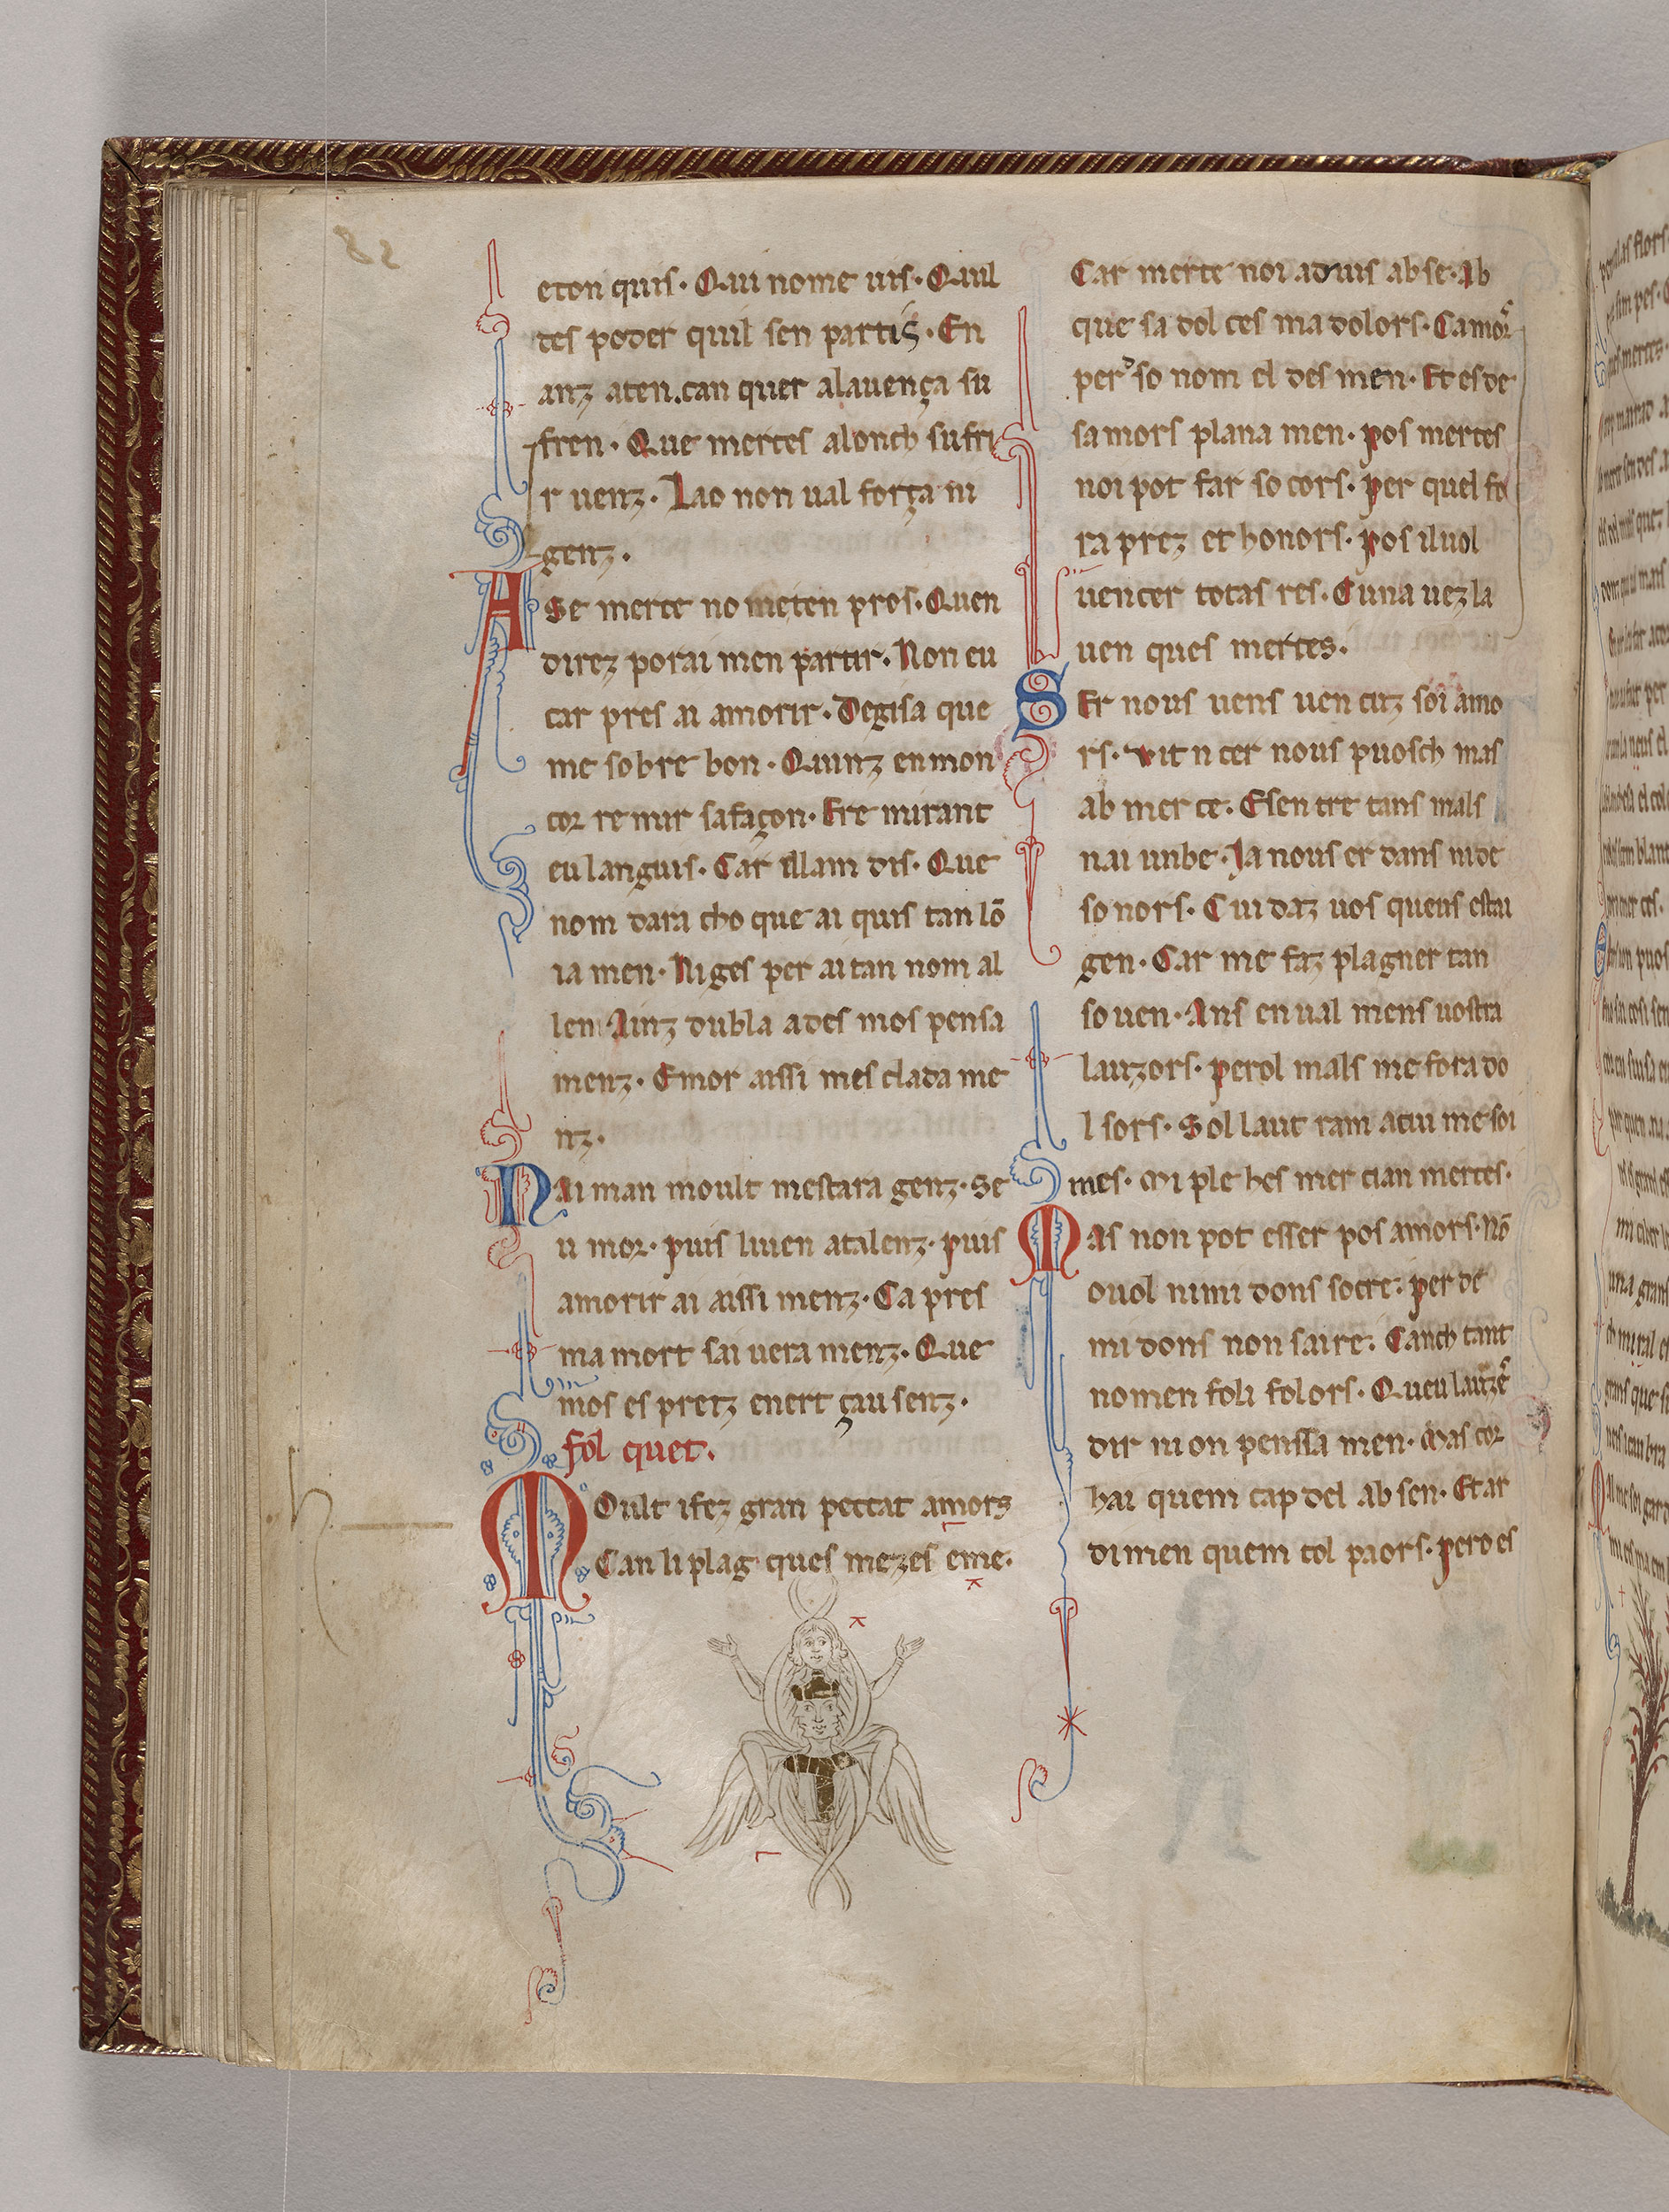 82
eton quis. Qui nome uis. Quil
tes poder quil sen partis. En
anz aten. can quer alauença su
fren. Que merces alonch sufri
r uenz. Lao non ual força ni
genz.
A Se merce no meten pros. Quen
direz porai men partir. Non eu
car pres ai amorir. Degisa que
me sobre bon. Quinz en mon
cor remir sa façon. Ere mirant
eu languis. Car illam dis. Que
nom dara cho que ai quis tan lō
ia men. Ni ges per aitan nom al
len. Ainz dubla ades mos pensa
menz. Emor aissi mesclada me
nz.
N Ai man moult mestara genz. Se
u mor. puis liuen atalenz. puis
amorir ai aissi menz. Ca pres
ma mort sai uera menz. Que
mos es pretz enert çausenz.
fol quet.
M Oult ifez gran peccat amors
Can li plag ques mezes eme.
Car merce noi aduis ab se. Ab
que sa dolces ma dolors. Camor
per so nom el des men. Et es de
samors plana men. pos merces
noi pot far socors. per quel fo
ra prez et honors. pos il uol
uencer totas res. Cuna uez la
uen ques merces.
S Er nous uens uencuz soi amo
rs. uit ncer nous puosch mas
ab merce. Esentre tans mals
nai unbe. Ia nous er dans nide
sonors. Cuidaz uos queus estai
gen. Car me faz plagner tan
souen. Ans enual mens uostra
lauzors. perol mals me fora do
lsors. Sol laut ram acui me soi
mes. Mi ples hes mercian merces.
M as non pot esser pos amors. Nō
ouol nimi dons socre. per de
mi dons non saire. Canch tant
nomen foli folors. Queu lauzes
dir ni on penssa men. Mas cor
hai quem capdel ab sen. Et ar
dimen quem tol paors. pero es